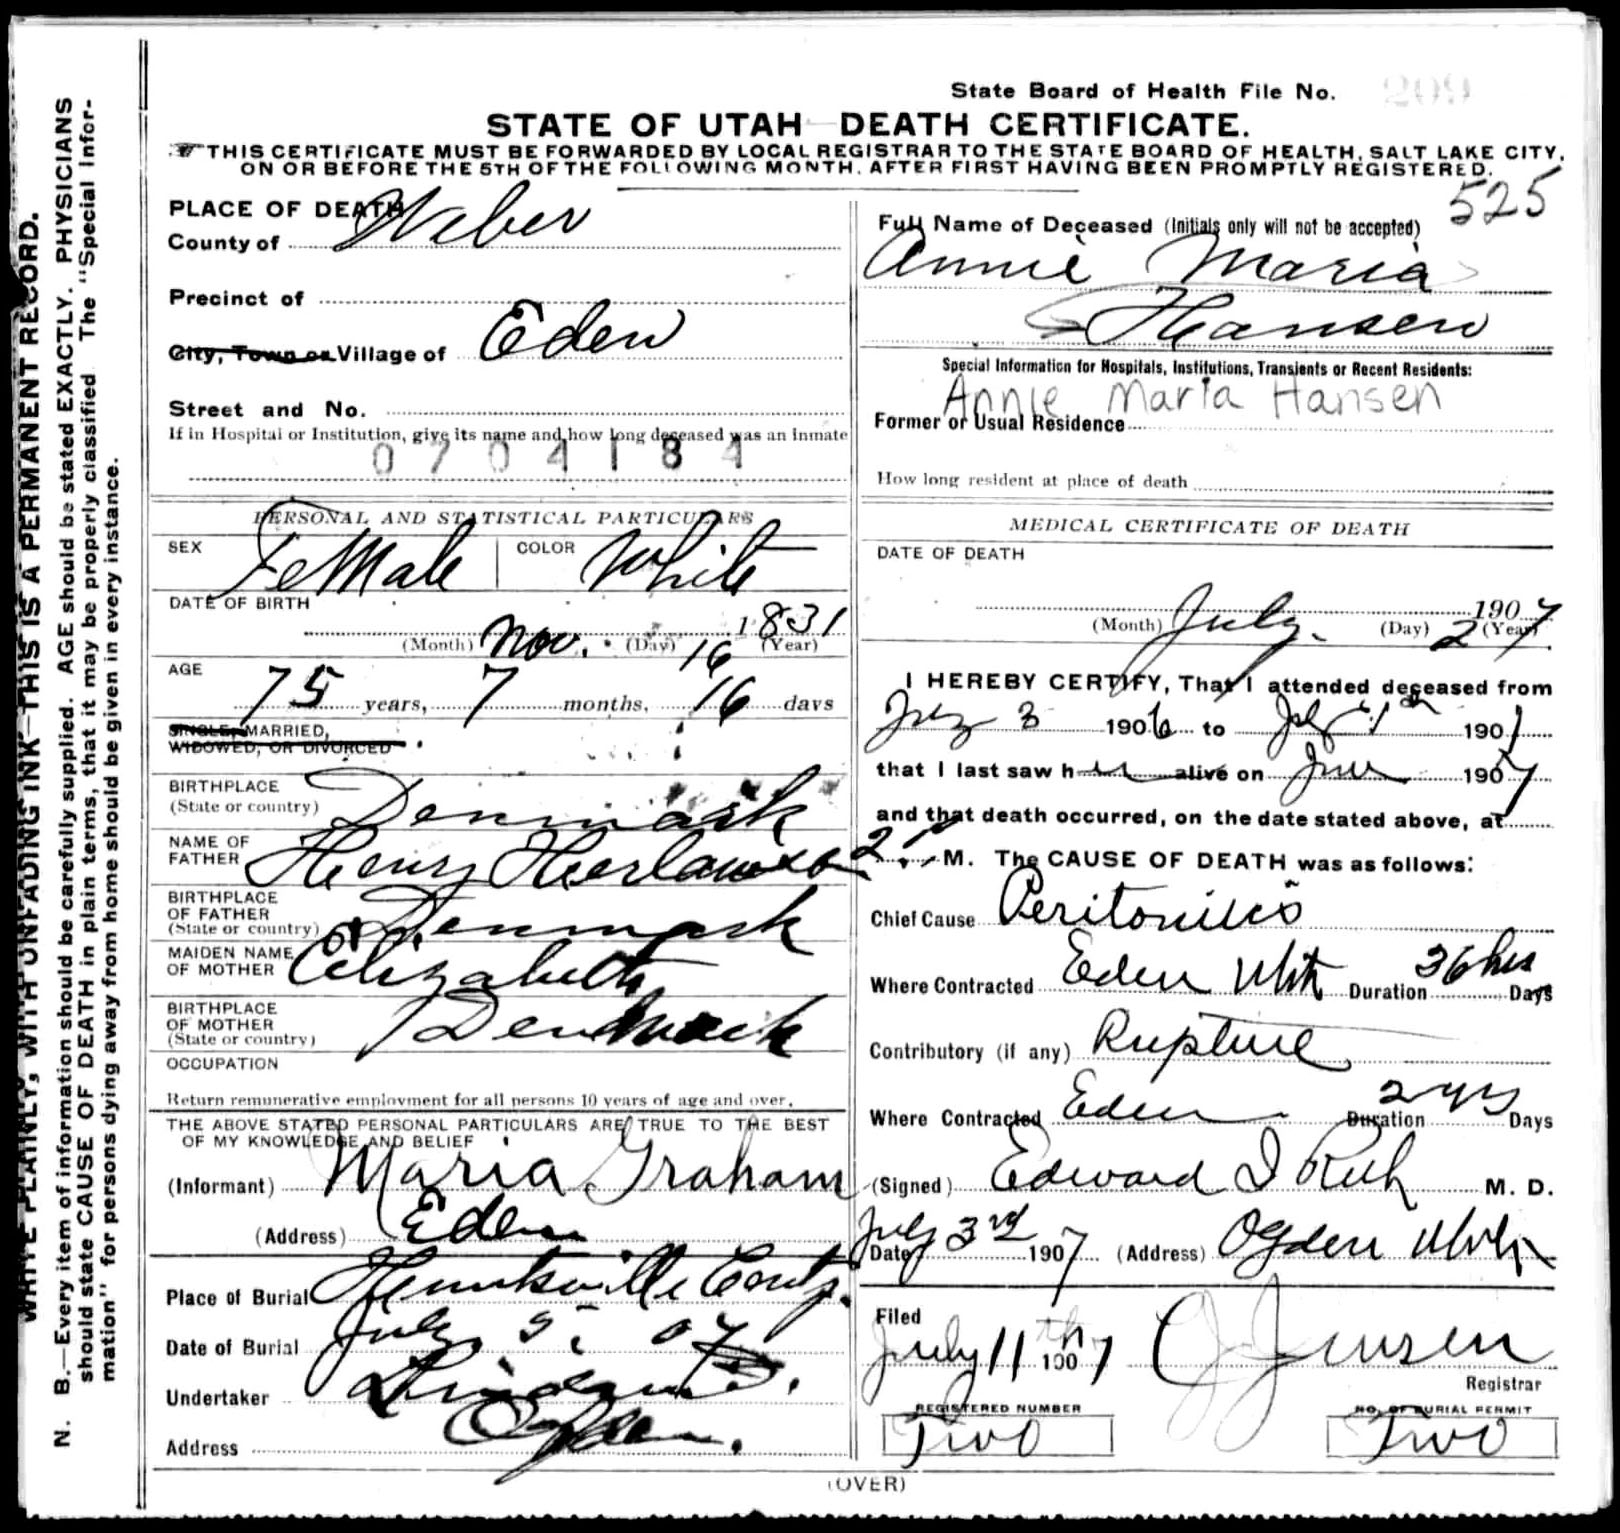 State Board of Health File No. 209
STATE OF UTAH DEATH CERTIFICATE.
THIS CERTIFICATE MUST BE FORWARDED BY LOCAL REGISTRAR TO THE STATE BOARD OF HEALTH, SALT LAKE CITY,
ON OR BEFORE THE 5TH OF THE FOLLOWING MONTH, AFTER FIRST HAVING BEEN PROMPTLY REGISTERED.
525
WRITE PLAINLY, WITH UNFADING INK—THIS IS A PERMANENT RECORD.
N. B.—Every item of information should be carefully supplied. AGE should be stated EXACTLY. PHYSICIANS
should state CAUSE OF DEATH in plain terms, that it may be properly classified The "Special Infor-
mation" for persons dying away from home should be given in every instance.
PLACE OF DEATH
County of Weber
Precinct of
City, Town or Village of Eden
Street and No.
If in Hospital or Institution, give its name and how long deceased was an inmate
0704184
PERSONAL AND STATISTICAL PARTICULARS
SEX FeMale COLOR White
DATE OF BIRTH
(Month) Nov. (Day) 16 1831 (Year)
AGE
75 years, 7 months, 16 days
SINGLE, MARRIED,
WIDOWED, OR DIVORCED
BIRTHPLACE
(State or country) Denmark
NAME OF
FATHER Henry
BIRTHPLACE
OF FATHER
(State or country) Denmark
MAIDEN NAME
OF MOTHER Elizabeth
BIRTHPLACE
OF MOTHER
(State or country) Denmark
OCCUPATION
Return remunerative employment for all persons 10 years of age and over.
THE ABOVE STATED PERSONAL PARTICULARS ARE TRUE TO THE BEST
OF MY KNOWLEDGE AND BELIEF
(Informant) Maria Graham
(Address) Eden
Place of Burial Huntsville
Date of Burial July 5. 07
Undertaker
Address Ogden.
Full Name of Deceased (Initials only will not be accepted)
Annie Maria
Hansen
Special Information for Hospitals, Institutions, Transients or Recent Residents:
Annie Maria Hansen
Former or Usual Residence
How long resident at place of death
MEDICAL CERTIFICATE OF DEATH
DATE OF DEATH
(Month) July. (Day) 2 1907 (Year)
I HEREBY CERTIFY, That I attended deceased from
3 1906 to 190
that I last saw her alive on June 1907
and that death occurred, on the date stated above, at
2 M. The CAUSE OF DEATH was as follows:
Chief Cause Peritonitis
Where Contracted Eden Utah Duration 36 hrs Days
Contributory (if any) Rupture
Where Contracted Eden Duration 2 yrs Days
(Signed) Edward I Rich M. D.
Date July 3rd 1907 (Address) Ogden Utah
Filed
July 11th 1907 J Jensen
Registrar
REGISTERED NUMBER
Two
NO. OF BURIAL PERMIT
Two
(OVER)